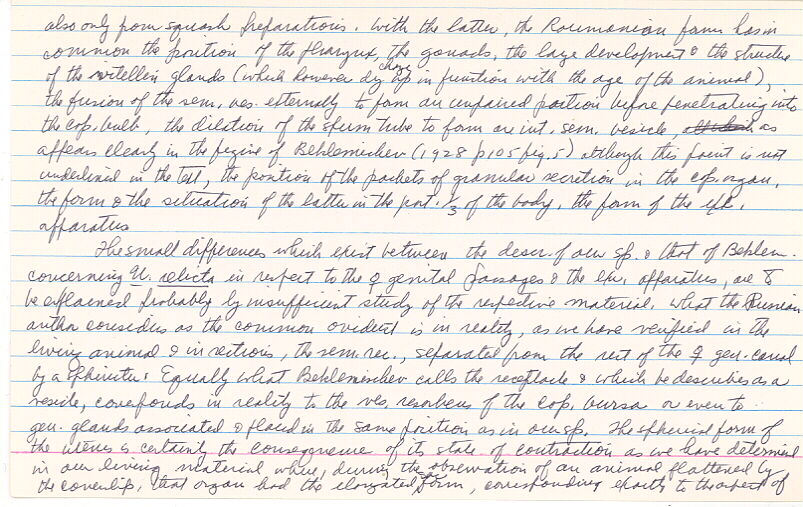 also only from squash preparations. With the latter, the Roumanian form has in
common the position of the pharynx, the gonads, the large development & the structure
of the vitellin glands (which however dig change up in function with the age of the animal),
the fusion of the sem. ves. externally to form an unpaired portion before penetrating into
the cop. bulb, the dilation of the sperm tube to form an int. sem. vesicle, as
appears clearly in the figure of Beklemischev (1928 p105 fig. 5) although this point is not
underlined in the text, the position of the packets of granular secretion in the cop. organ,
the form & the situation of the latter in the post. 1/3 of the body, the form of the
apparatus
The small differences which exist between the descr. of our sp. & that of Beklem.
concerning relicta in respect to the ♀ genital passages & the apparatus, are to
be explained probably by insufficient study of the respective material. What the Russian
author considers as the common oviduct is in reality, as we have verified in the
living animal & in sections, the sem. rec., separated from the rest of the ♀ gen. canal
by a sphincter. Equally what Beklemischev calls the receptacle & which he describes as a
vesicle, corresponds in reality to the ves. resorbens of the cop. bursa or even to
gen. glands associated & placed in the same position as in our sp. The spherical form of
the uterus is certainly the consequence of its state of contraction as we have determined
in our living material where, during the observation of an animal flattened by
the coverslip, that organ had the elongated form, corresponding exactly to the aspect of